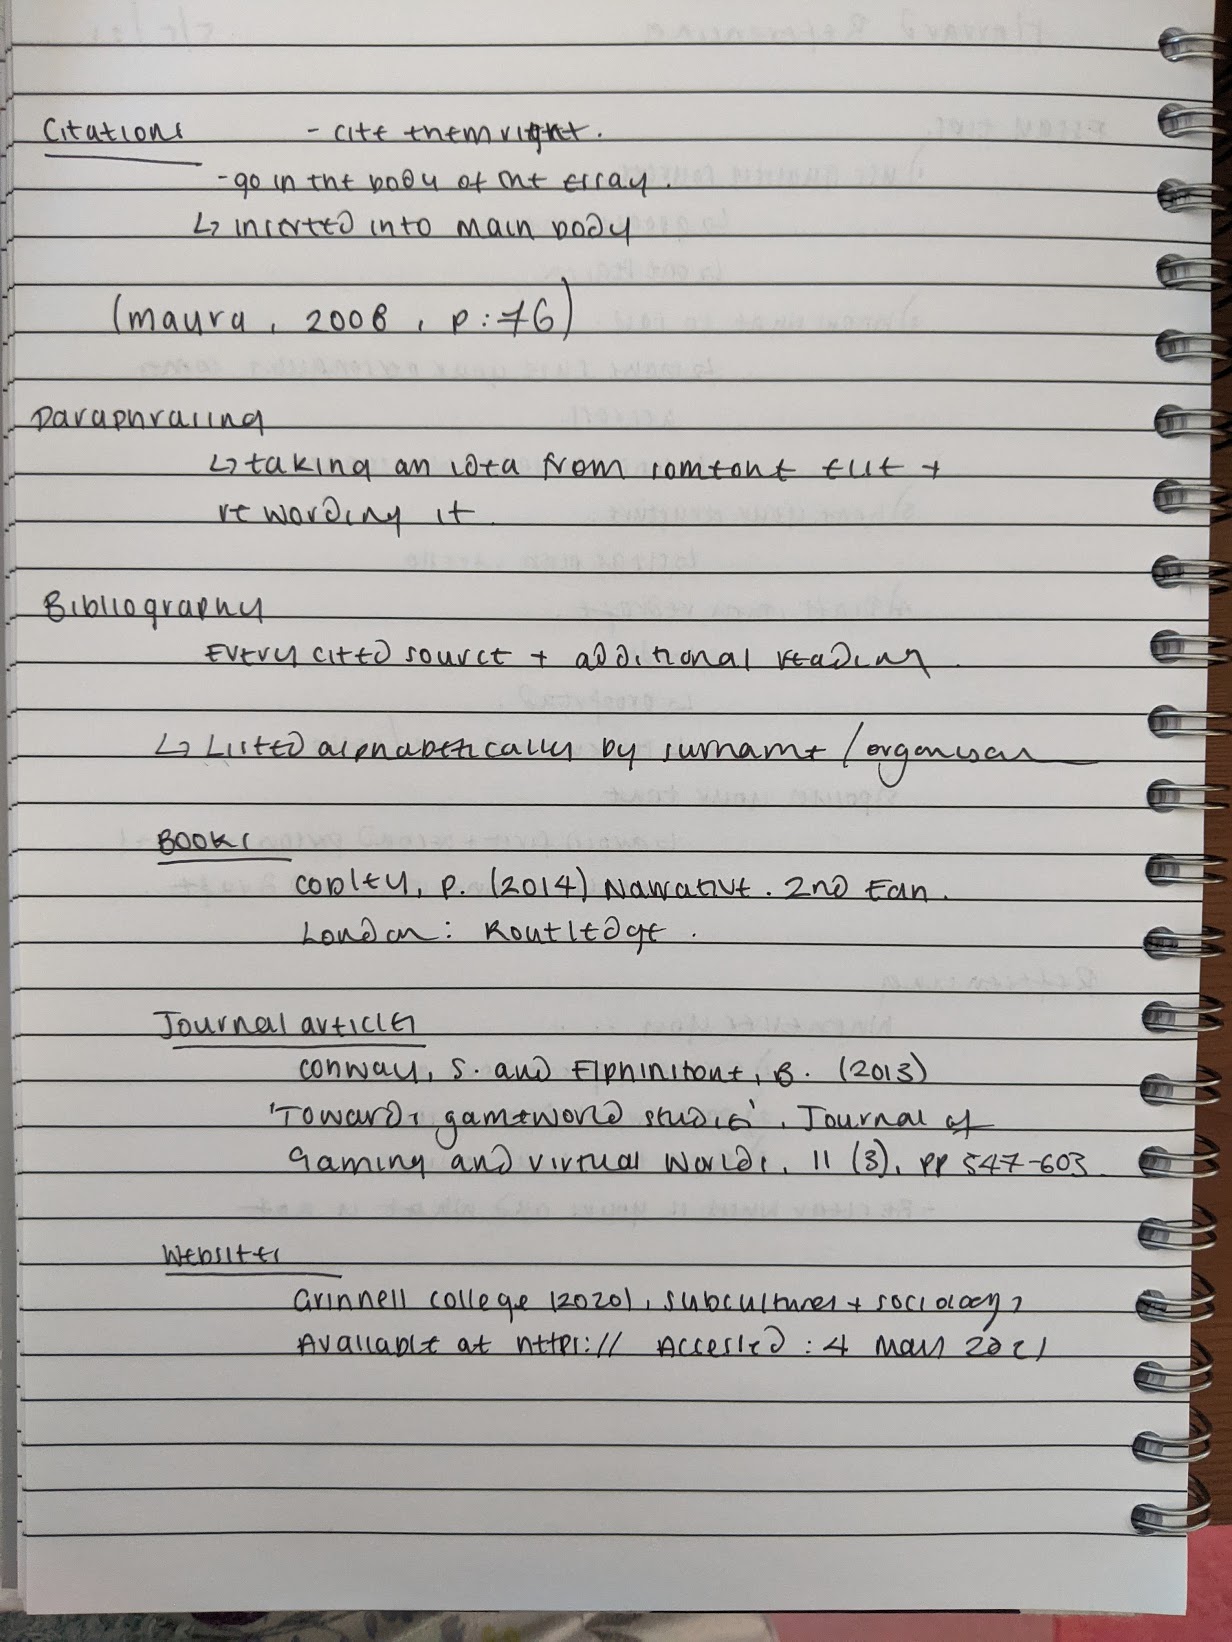 Citations - cite them right.
- go in the body of the essay.
↳ inserted into main body
(maura, 2008, p:76)
Paraphrasing
↳ taking an idea from someone else +
rewording it
Bibliography
Every cited source + additional reading.
↳ Listed alphabetically by surname /
Books
P. (2014) Narrative. 2nd Edn.
London: Routledge.
Journal articles
Conway, S. and Elphinstone, B. (2013)
'Towards gameworld studies', Journal of
Gaming and virtual Worlds, 11 (3), pp 547-603.
Websites
Grinnell college (2020), subcultures + sociology,
Available at https:// Accessed: 4 May 2021